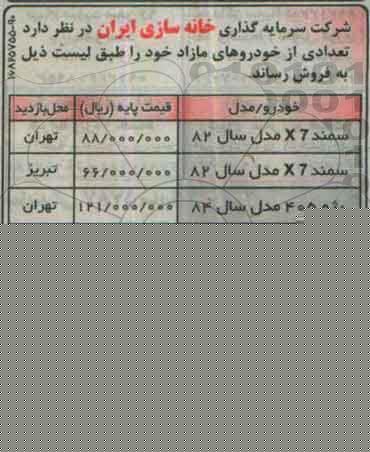 شرکت سرمایه گذاری خانه سازی ایران در نظر دارد
تعدادی از خودروهای مازاد خود را طبق لیست ذیل
به فروش رساند.
خودرو/مدل قیمت پایه (ریال) محل بازدید
سمند X 7 مدل سال ۸۲ ۸۸/۰۰۰/۰۰۰ تهران
سمند X 7 مدل سال ۸۲ ۶۶/۰۰۰/۰۰۰ تبریز
پژو ۴۰۵ مدل سال ۸۴ ۱۲۱/۰۰۰/۰۰۰ تهران